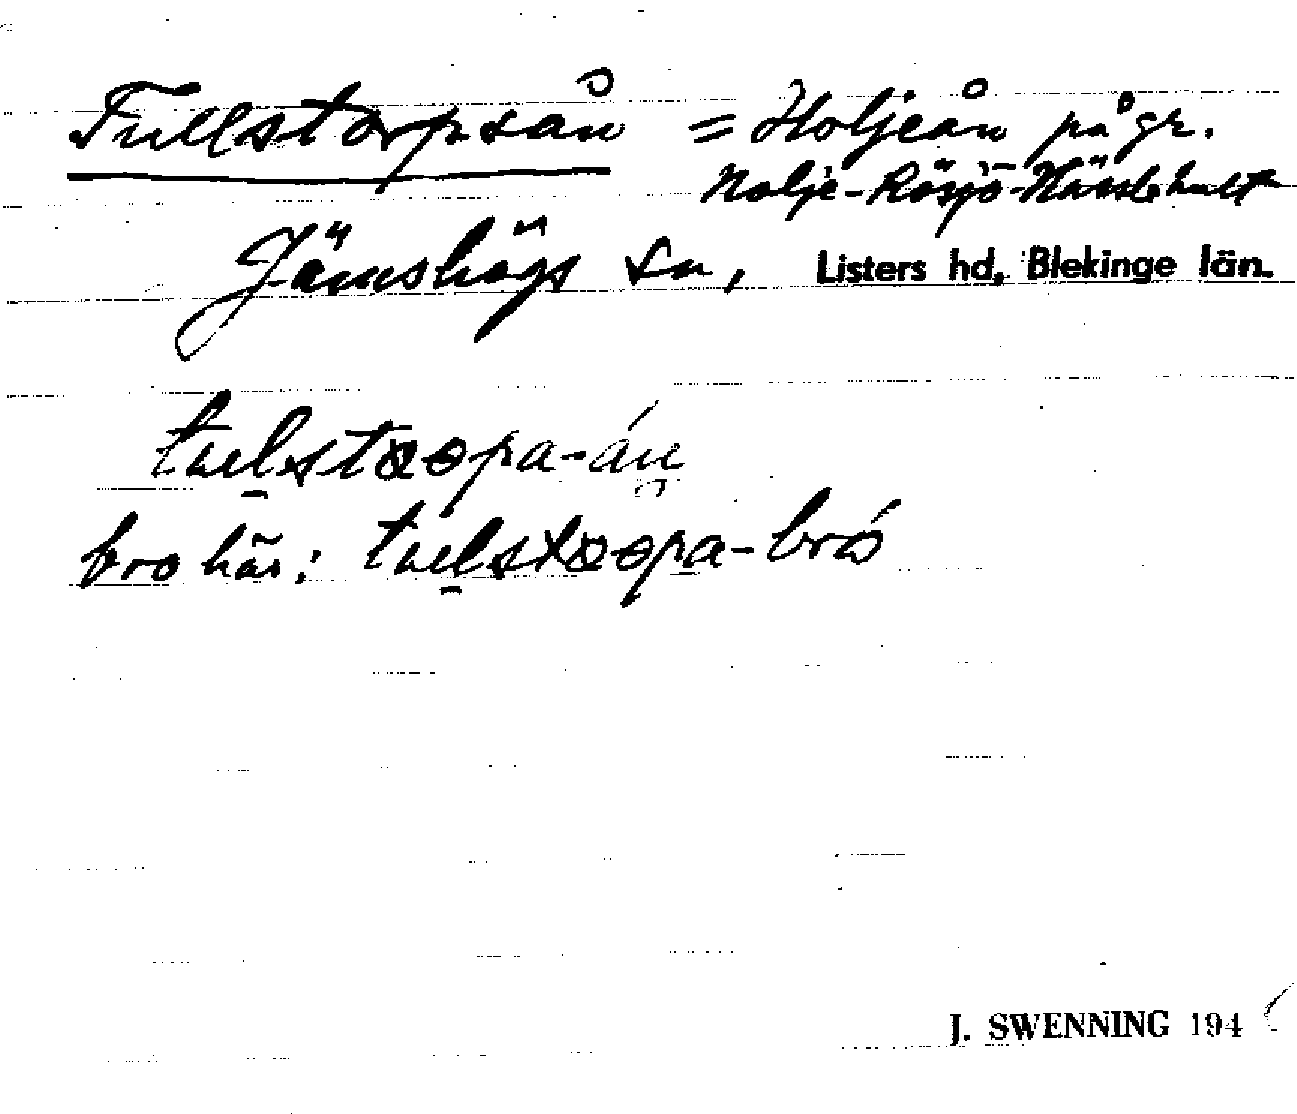 Tullstorpsån = Holjeån på gr.
Nolje-Rösjö-Hässlehult
Jämshögs sn, Listers hd, Blekinge län.
tuelstoopa-án
bro här: tuelstoopa-bró
J. SWENNING 194